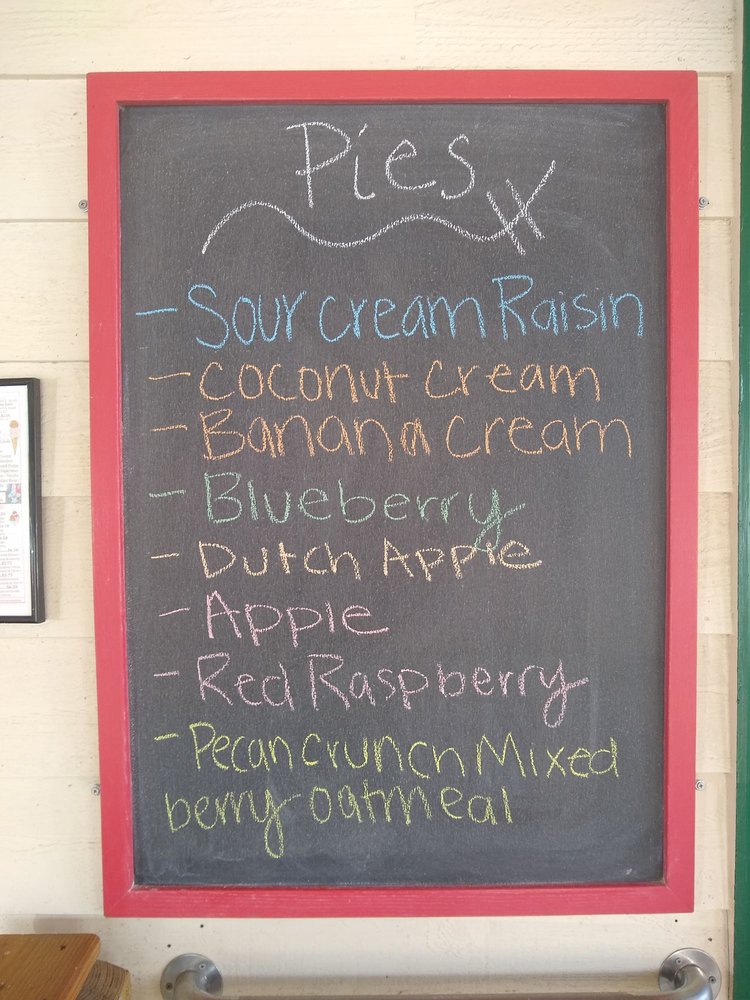 Pies
- Sour cream Raisin
- Coconut Cream
- Banana Cream
- Blueberry
- Dutch Apple
- Apple
- Red Raspberry
- Pecan Crunch Mixed
berry oatmeal